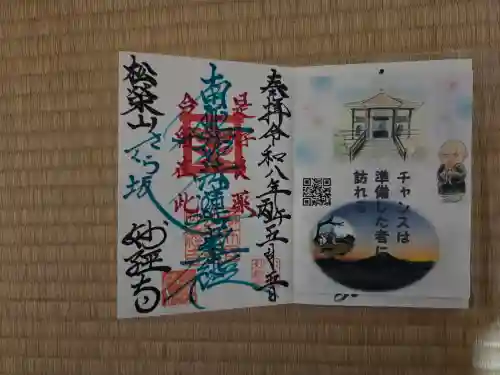 奉拝 令和八年丙午五月五日
是好良薬
南無妙法蓮華経
今留在此
松栄山
さくら坂
妙経寺
チャンスは
準備した者に
訪れ